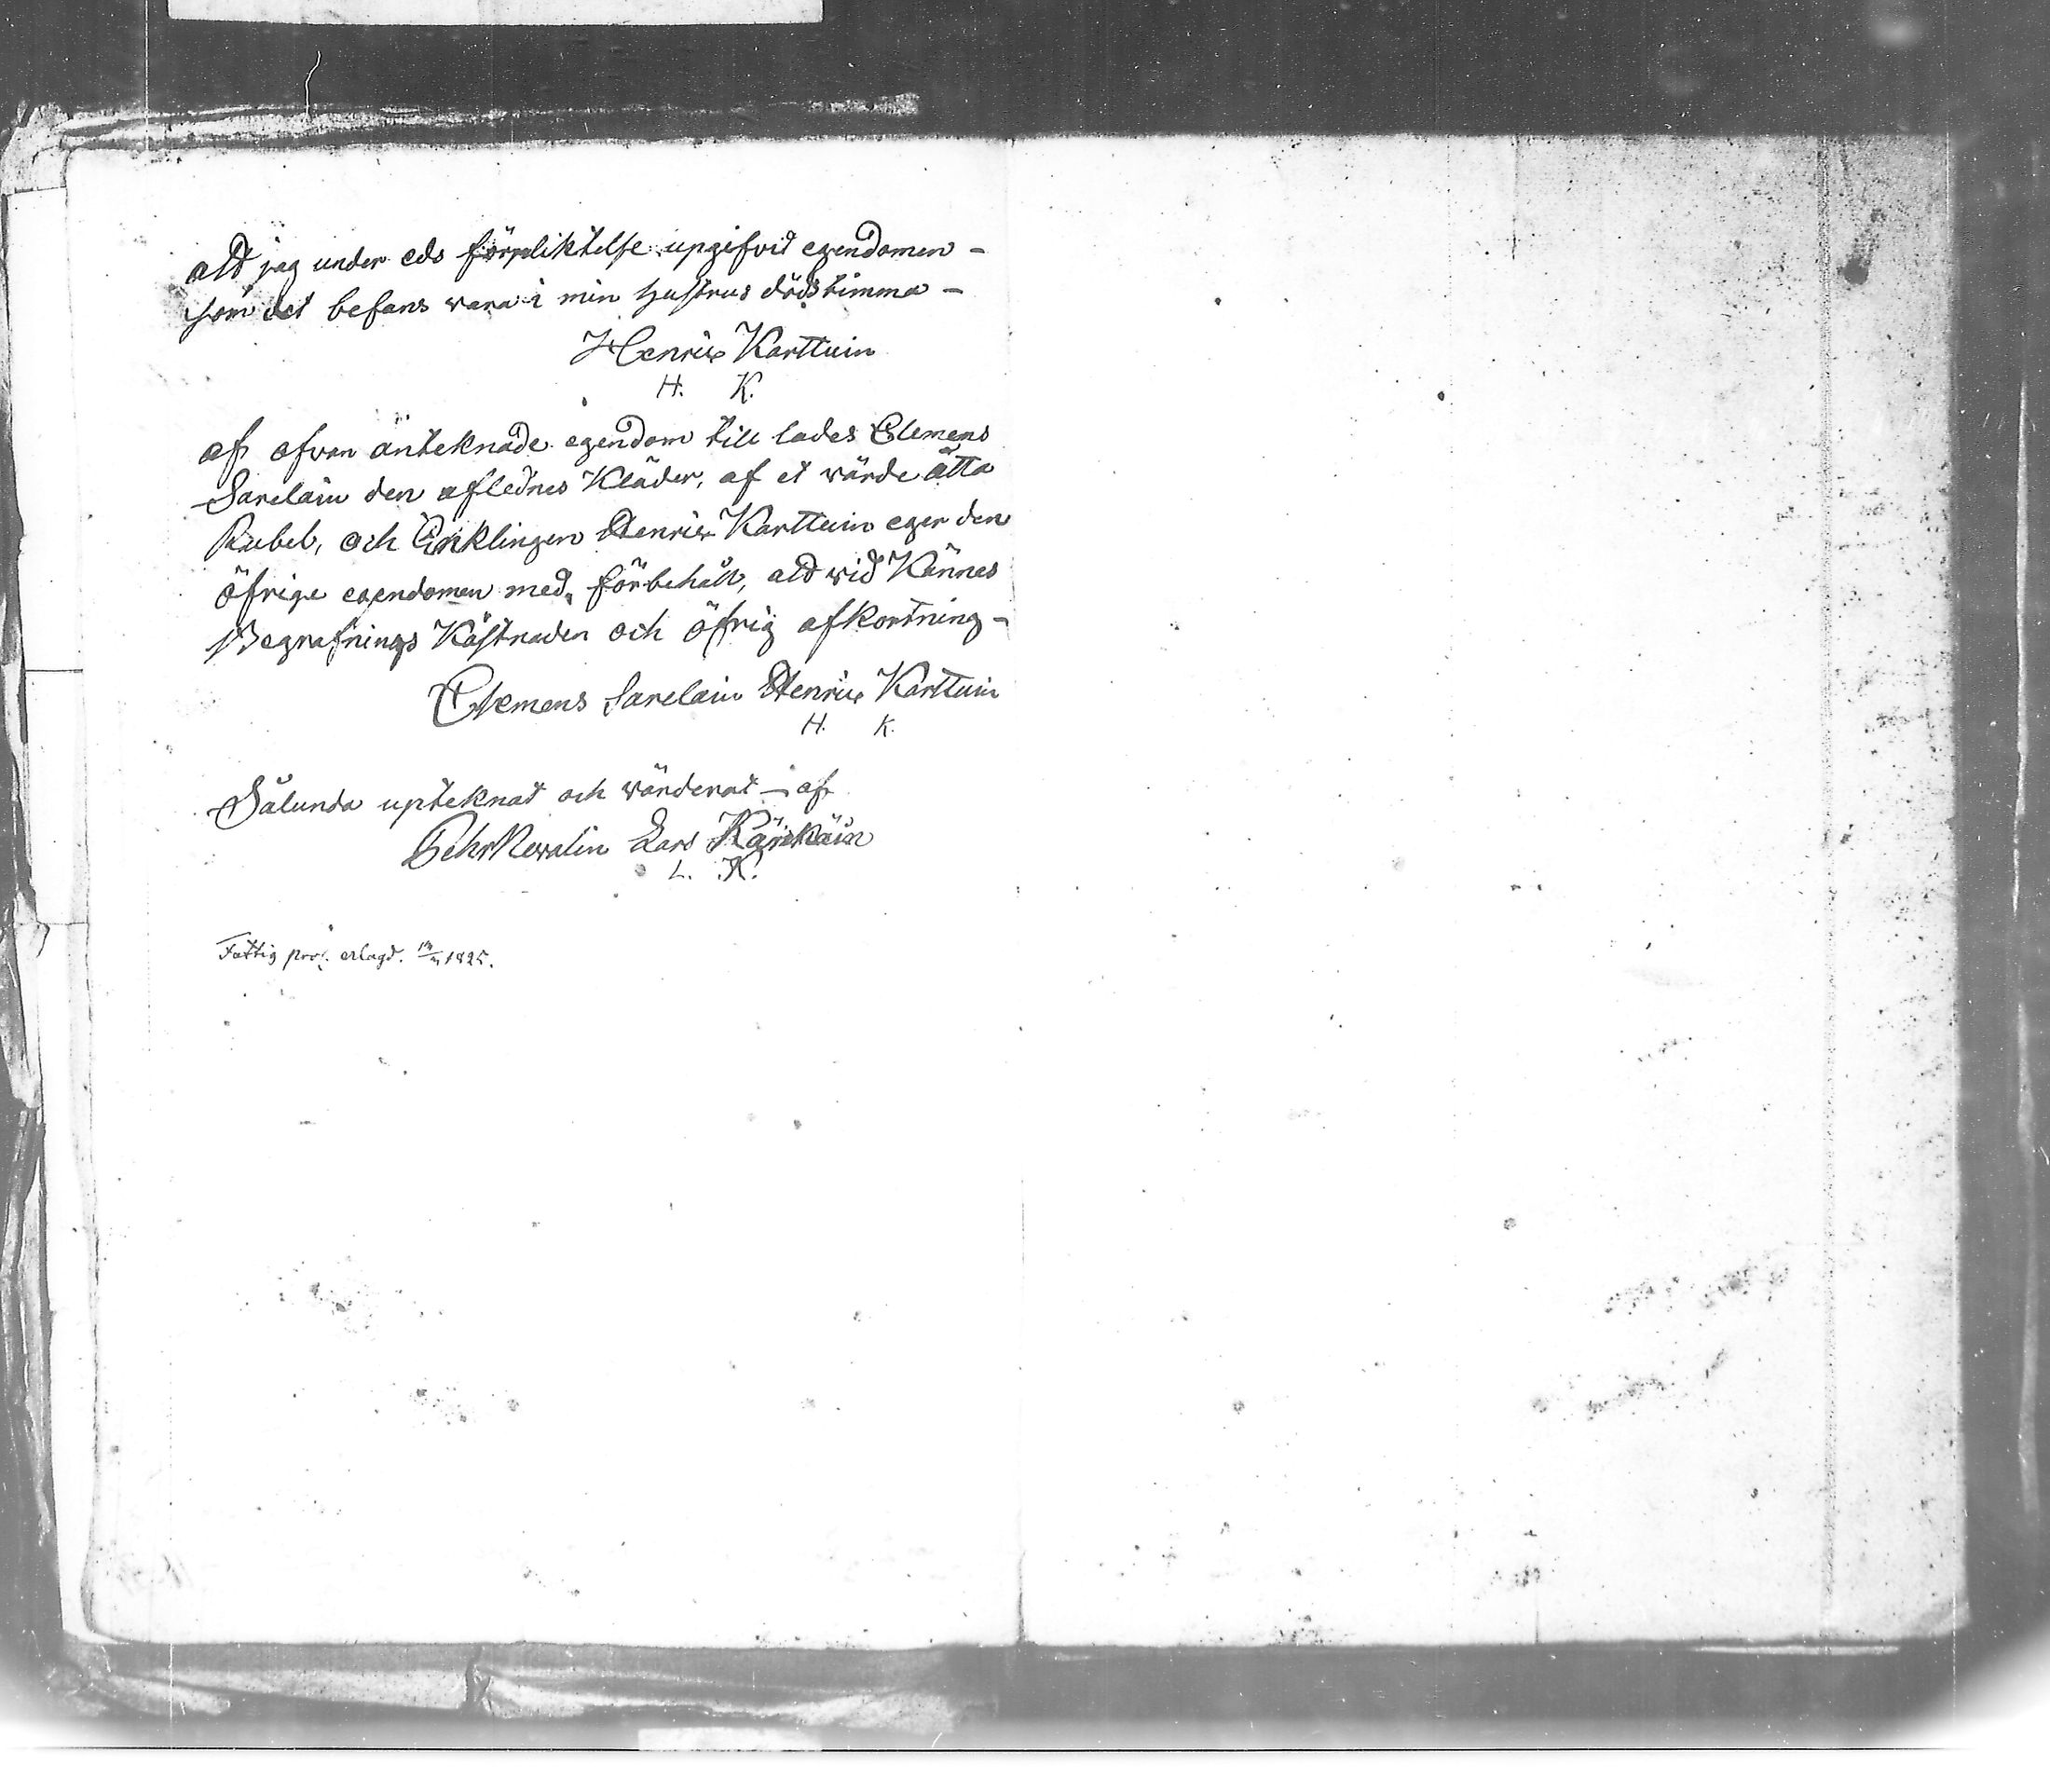 att jag under eds förpliktelse upgifvid egendomen -
som det befans vara i min Hustrus dödstimma -
Henric Karttuin
H. K.
af ofvan anteknade egendom till lades Clemens
Sarelain den aflednes Kläder, af et wärde åtta
Rubel, och Enklingen Henric Karttuin eger den
öfrige egendomen med förbehåll, att vid Kännes
Begrafnings Kåstnaden och öfrig afkortning -
Clemens Sarelain Henric Karttuin
H. K.
Sålunda upteknat och wärderat - af
Pehr Newalin Lars Kärkäin
L. K.
Fattig proc. erlagd. 1825.